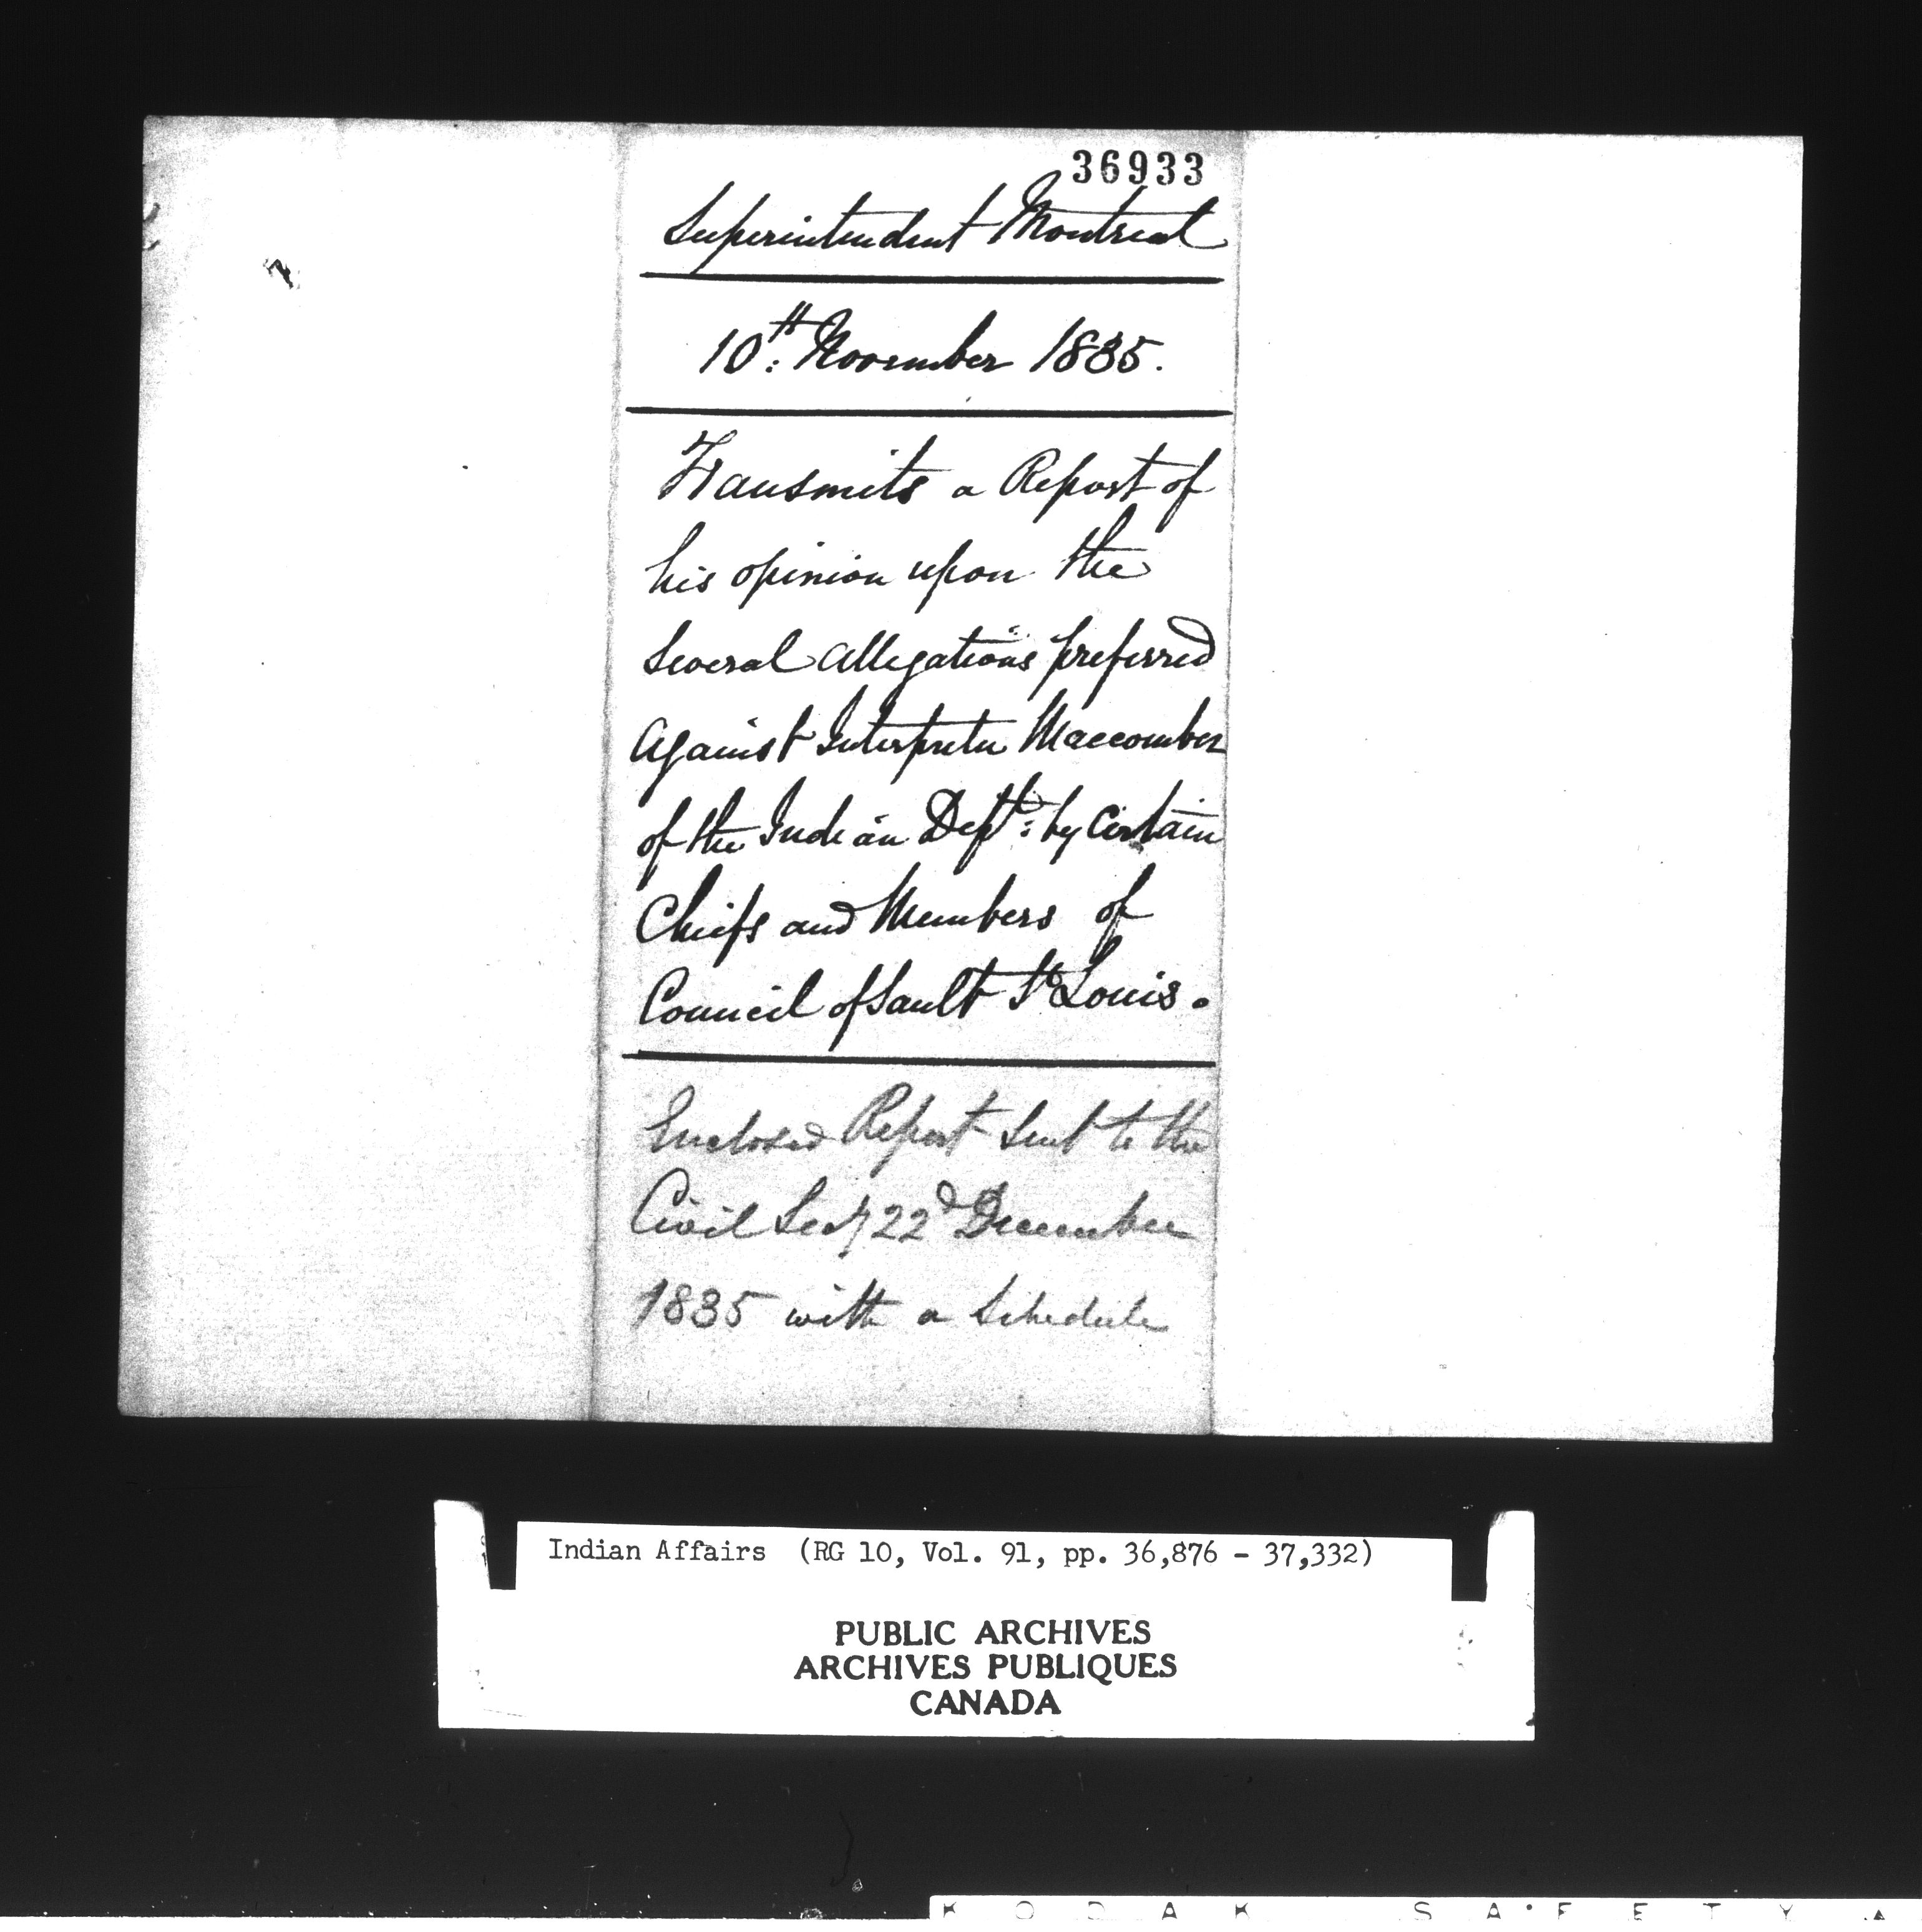 36933
Superintendent Montreal
10th. November 1835.
Transmits a Report of
his opinion upon the
several allegations preferred
against Interpreter Maccomber
of the Indian Dept: by Certain
Chiefs and Members of
Council of Sault St Louis.
Enclosed Report sent to the
Civil Secy 22d December
1835 with a Schedule
Indian Affairs (RG 10, Vol. 91, pp. 36,876 - 37,332)
PUBLIC ARCHIVES
ARCHIVES PUBLIQUES
CANADA
KODAK SAFETY